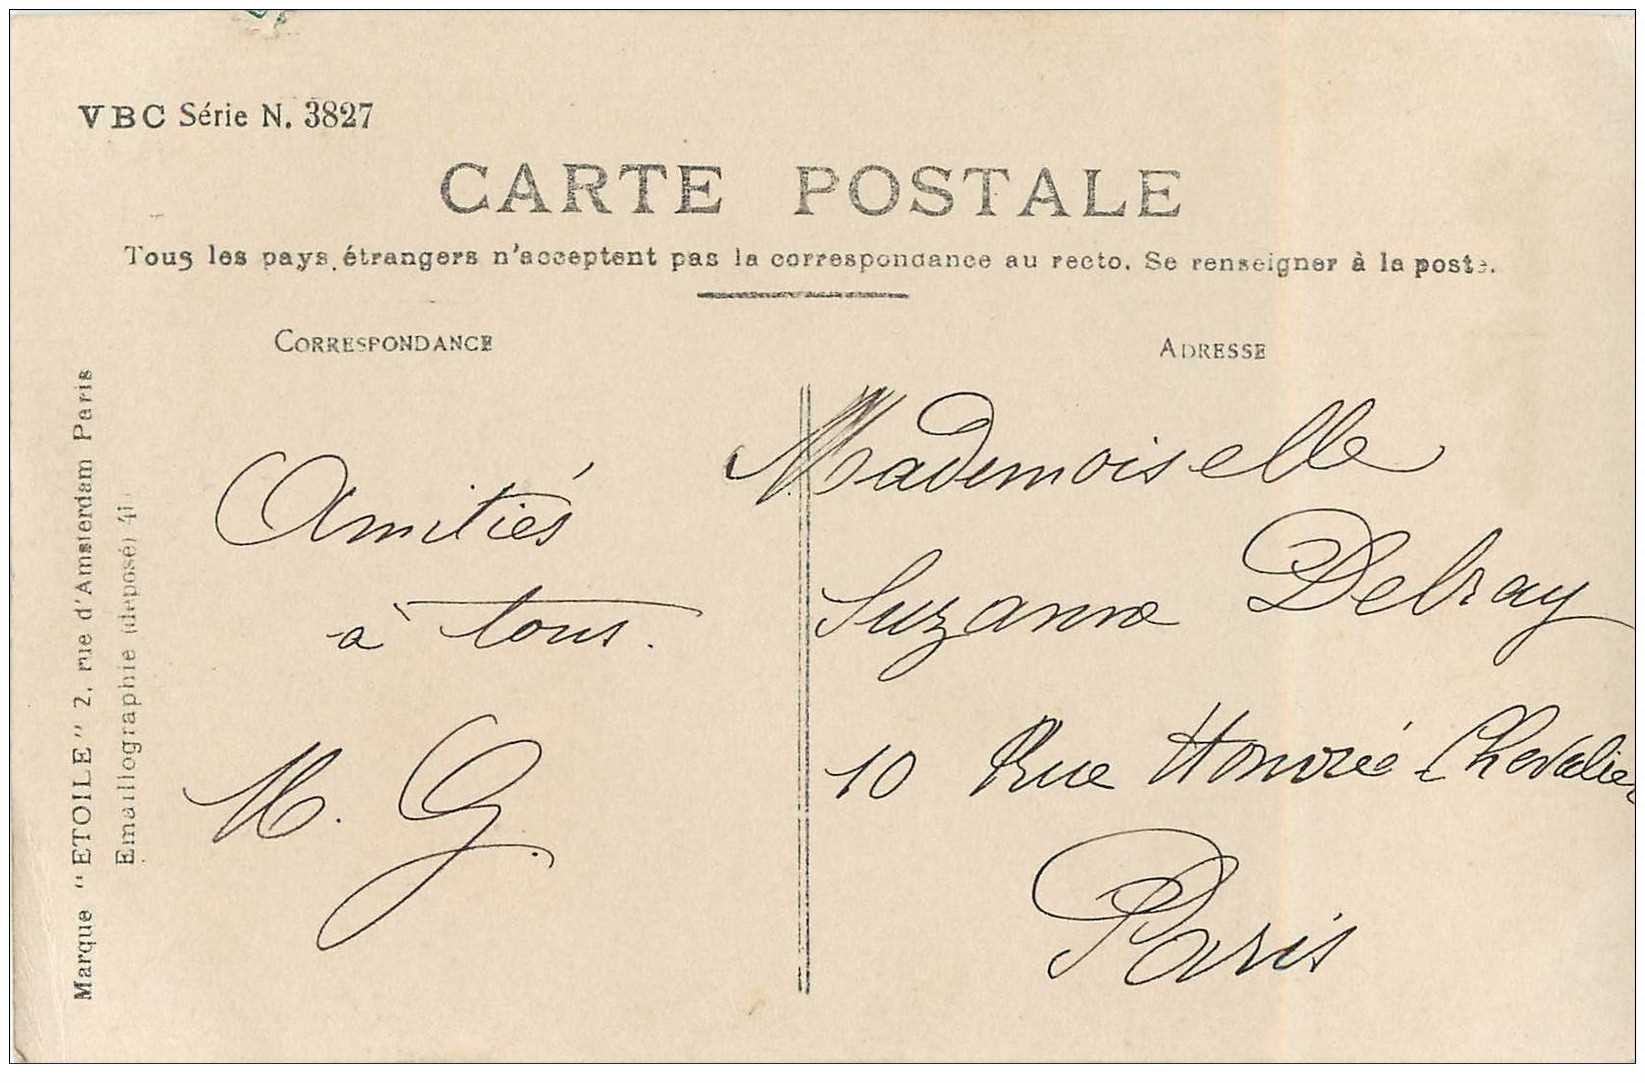 VBC Série N. 3827
CARTE POSTALE
Tous les pays étrangers n'acceptent pas la correspondance au recto. Se renseigner à la poste.
CORRESPONDANCE
ADRESSE
Marque "ETOILE" 2, rue d'Amsterdam Paris
Emaillographie (déposé) 41
Amitiés
à tous.
M. G.
Mademoiselle
Suzanne Delray
10 Rue Honoré Chevalier
Paris